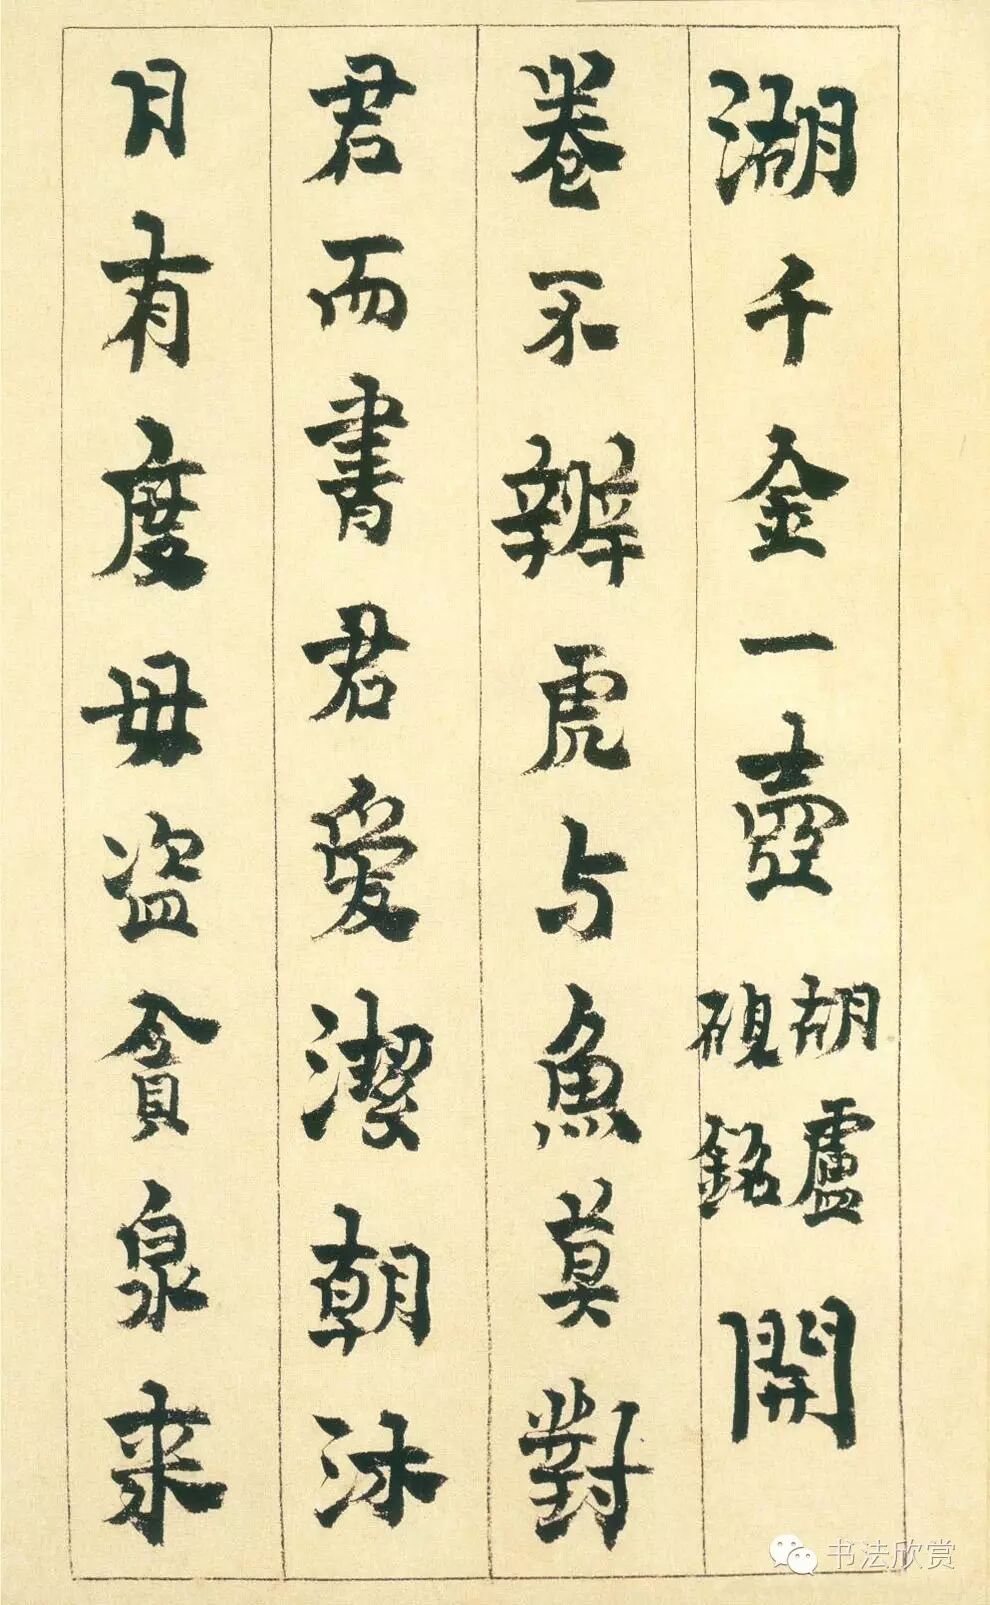 湖千金一壺胡盧硯銘開
卷不辨虎与魚莫對
君而書君愛潔朝沐
月有度毋盜貪泉來
书法欣赏